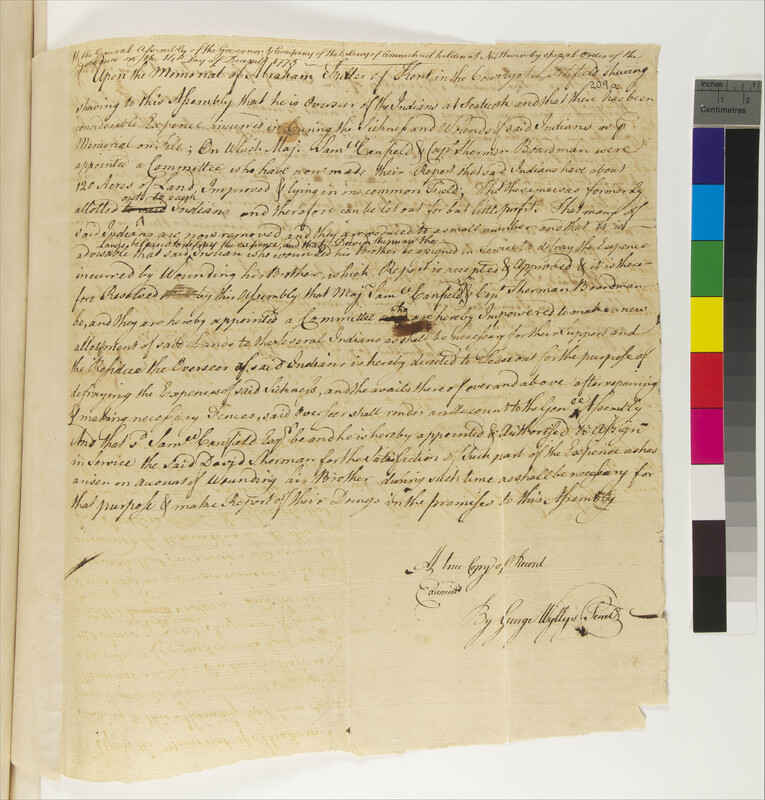 At the General Assembly of the Governor & Company of the Colony of Connecticut holden at New Haven by special order of the
Governor on the 14th Day of Decemr 1775
209a
Upon the Memorial of Abraham Fuller of Kent in the County of Litchfield shewing
shewing to this Assembly that he is Overseer of the Indians at Scatecook and that there has been
considerable Expence incurred in Curing the Sickness and Wounds of said Indians as p
Memorial on file; On Which Maj. Saml Canfield & Capt Sherman Boardman were
appointed a Committee who have now made their Report that said Indians have about
120 Acres of Land, Improved & lying in one common Field; That the same was formerly
allotted outs to each Indian and therefore can be let out for but little profit. That many of
said Indians are now removed and they are reduced to a small number and that it is
Lands, be leased to defray the expence, and that David Sherman the
adviseable that said Indian who wounded his Brother be assigned in service to defray the Expence
incurred by Wounding his Brother, which Report is accepted & Approved & it is there-
fore Resolved by this Assembly that Majr Samel Canfield & Capt Sherman Boardman
be, and they are hereby appointed a Committee who are hereby Impowered to make a new
allotment of said Lands to the several Indians as shall be necessary for their Support and
the Residue the Overseer of said Indians is hereby directed to Lease out for the purpose of
defraying the Expences of said Sickness, and the avails thereof over and above after repairing
& making necessary Fences, said Overseer shall render an Account to the Genll Assembly
And that sd Samel Canfield Esqr be and he is hereby appointed & Authorised to Assign
in Service the Said David Sherman for the Satisfaction of Such part of the Expence as has
arisen on Account of Wounding his Brother during such time as shall be necessary for
that purpose & make Report of their Doings in the premises to this Assembly
A true Copy of Record
Examind
By George Wyllys Secrety
Inches
1
2
Centimetres